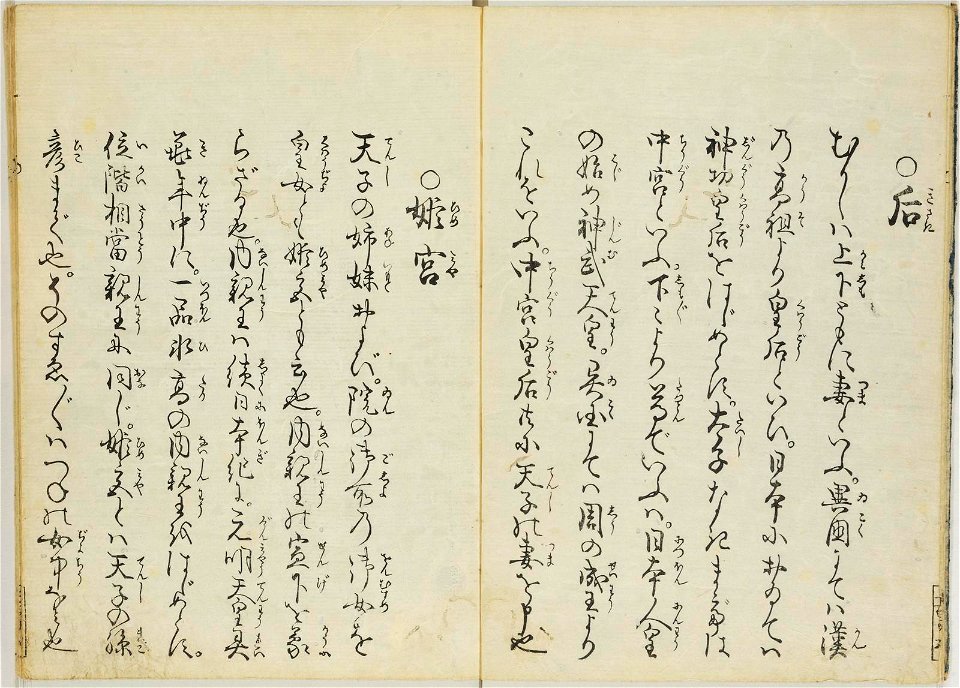 ○后
むかしハ上下ともに妻といふ。異国にてハ漢
乃高祖より皇后といひ。日本におゐてハ
神功皇后をはじめとす。太子なきまではは
中宮といふ下より
の始め神武天皇。異国にてハ周の成王より
これをいふ。中宮皇后共に天子の妻を申也
○姫宮
天子の姉妹および。院の御所乃御女を
皇女とも姫宮とも云也。内親王の宣下を蒙
らざる也。内親王ハ続日本紀に。元明天皇
霊亀年中に。一品氷高の内親王をはじめとす。
位階相當親王に同じ。姫宮とハ天子の孫
彦まで也。その すゑ〴〵ハつねの女中なる也